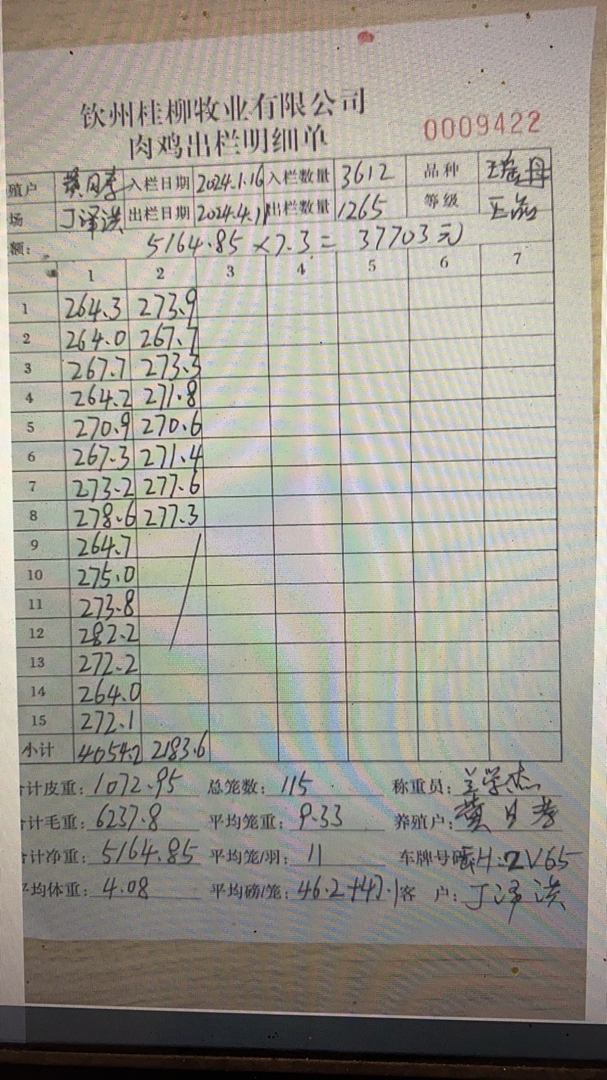 钦州桂柳牧业有限公司
肉鸡出栏明细单 0009422
殖户 黄日孝 入栏日期 2024.1.16 入栏数量 3612 品种 瑶丹
场 丁泽洪 出栏日期 2024.4.11 出栏数量 1265 等级 正品
额: 5164.85×7.3= 37703元
1 2 3 4 5 6 7
1 264.3 273.9
2 264.0 267.7
3 267.7 273.3
4 264.2 271.8
5 270.9 270.6
6 267.3 271.4
7 273.2 277.6
8 278.6 277.3
9 264.7
10 275.0
11 273.8
12 282.2
13 272.2
14 264.0
15 272.1
小计 4054.2 2183.6
计皮重: 1072.95 总笼数: 115 称重员: 兰学杰
计毛重: 6237.8 平均笼重: 9.33 养殖户: 黄日孝
计净重: 5164.85 平均笼/羽: 11 车牌号码 H:2V65
平均体重: 4.08 平均磅/笼: 46.2+47.1 客 户: 丁泽洪